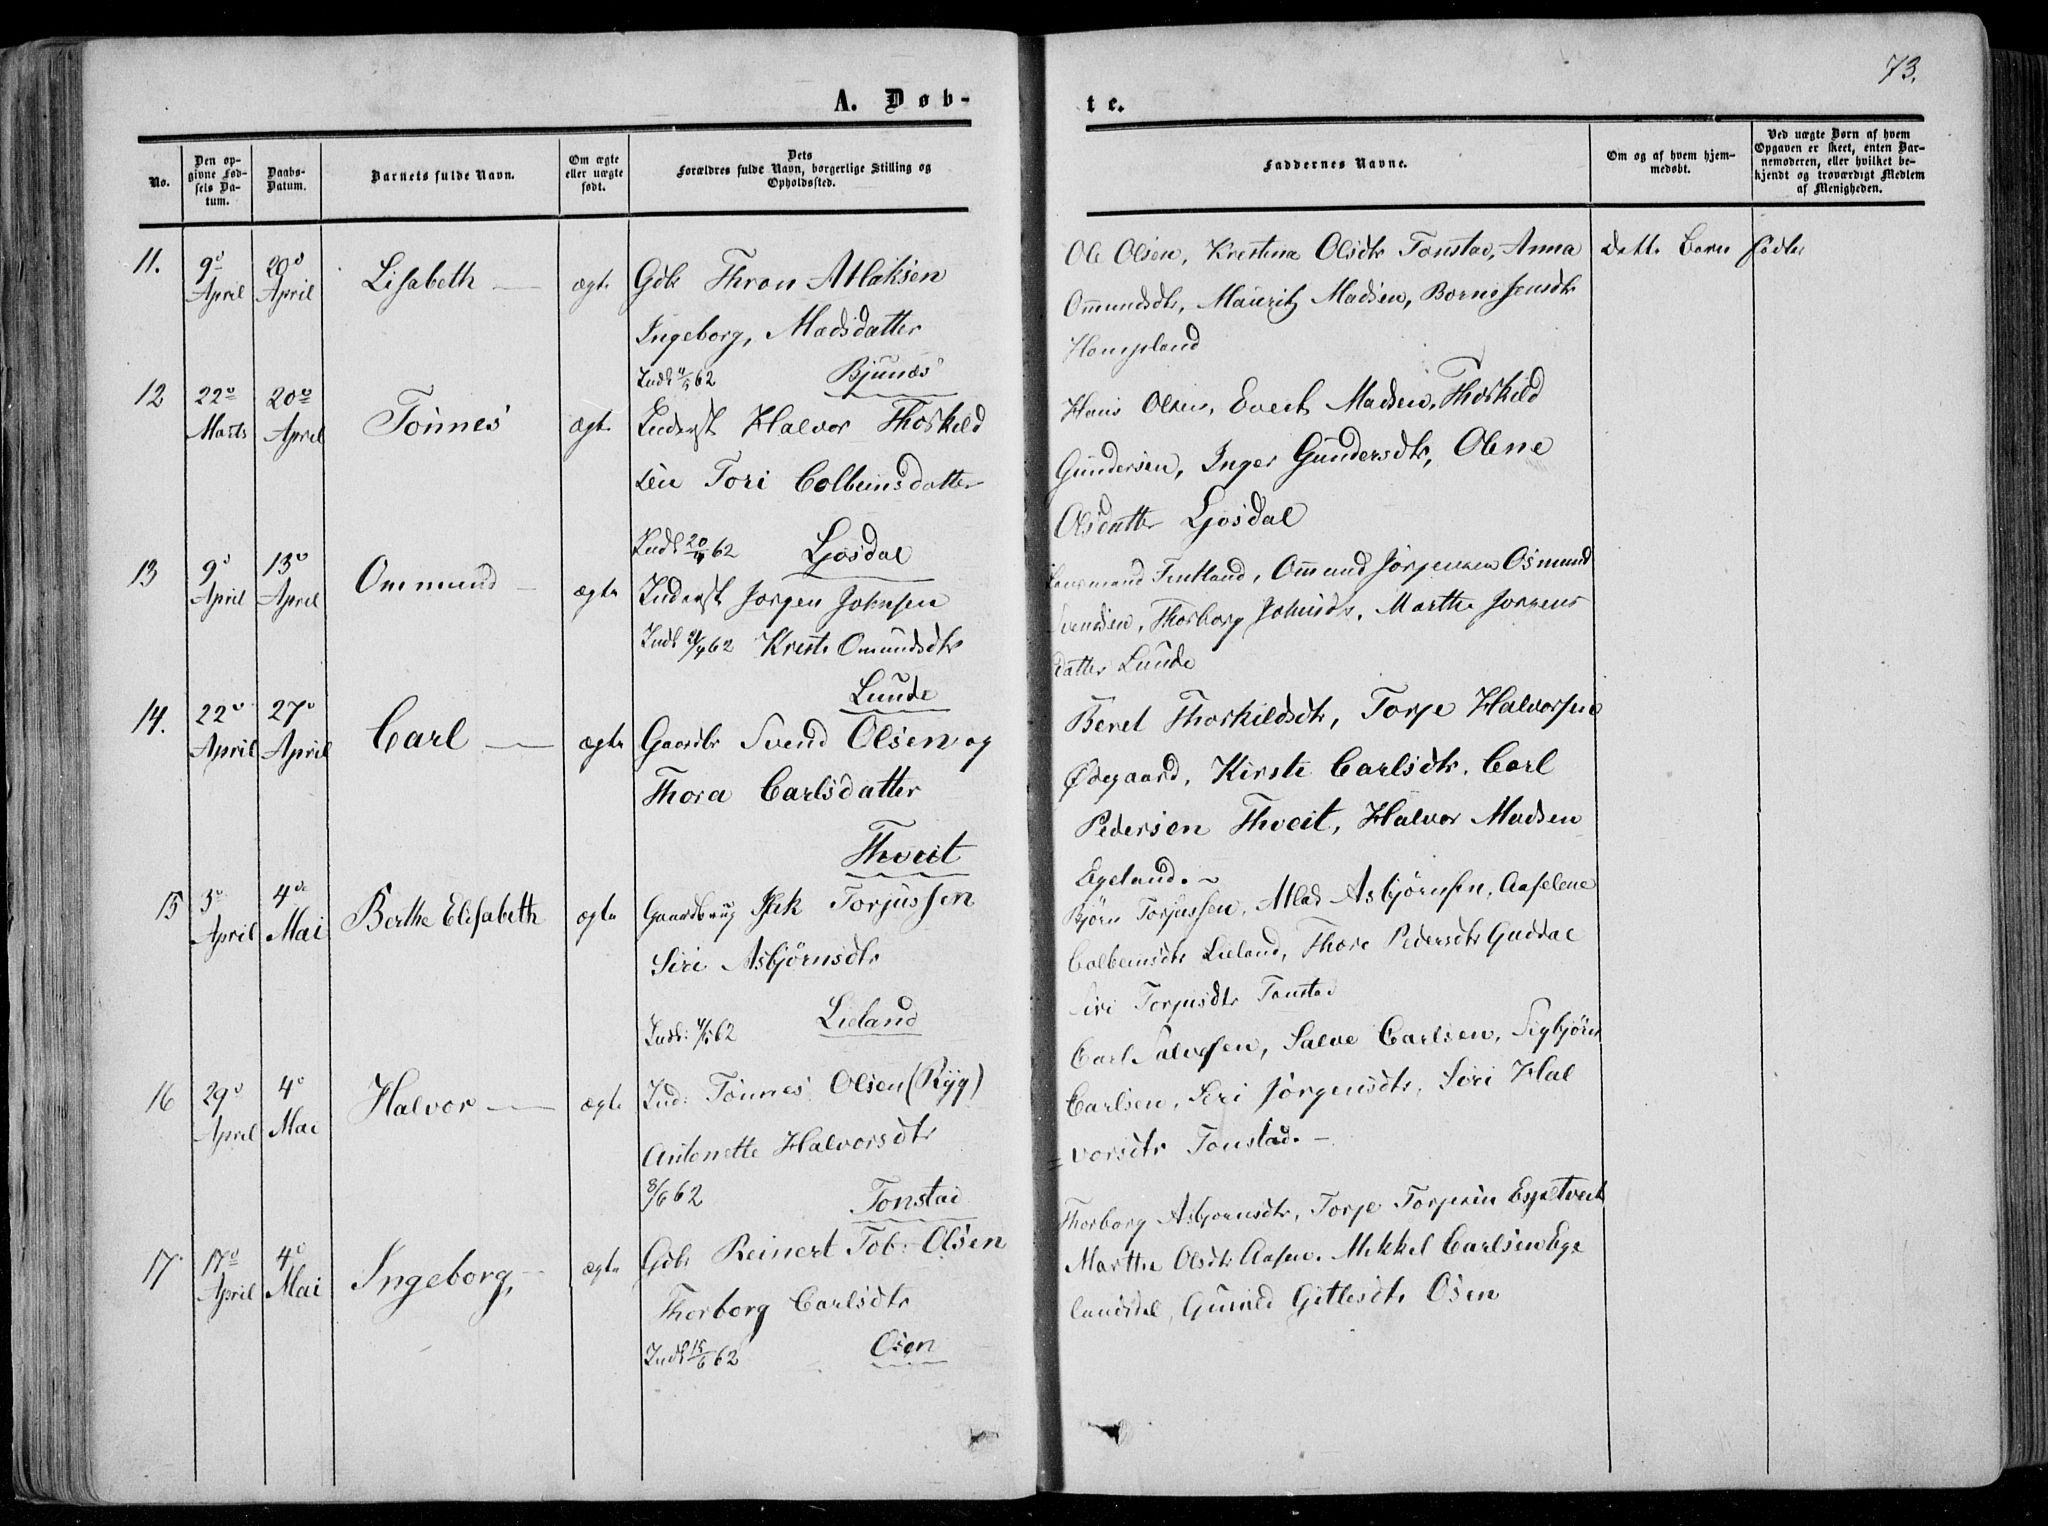 73.
A. Døb-
te.
No.
Den op-
givne Fød-
sels Da-
tum.
Daabs-
Datum.
Barnets fulde Navn.
Om ægte
eller uægte
født.
Dets
Forældres fulde Navn, borgerlige Stilling og
Opholdssted.
Faddernes Navne.
Om og af hvem hjem-
medøbt.
Ved uægte Børn af hvem
Opgaven er skeet, enten Bar-
nemoderen, eller hvilket be-
kjendt og troværdigt Medlem
af Menigheden.
11.
9d
April
20d
April
Lisabeth
ægte
Gdb Thron Atlaksen
Ingeborg, Madsdatter
62 Bjunæs
Ole Olsen, Krestina Olsdtr Tonstad, Anna
Ommundsdtr, Mauritz Madsen,
Hompland
12
22
Marts
20
April
Tönnes
ægte
Inderst Halvor Thorkild
sen Tori Colbeinsdatter
Indl 20/4 62 Ljosdal
Hans Olsen, Evert Madsen, Thorkild
Gundersen, Inger Gundersdtr, Olene
Olsdatter Ljosdal
13
9d
April
13
April
Ommund
ægte
Inderst Jorgen Johnsen
Indl 62 Kirste Omundsdtr
Lunde
Fintland, Ommund Jörgensen Osmund
Svendsen, Thorborg Johnsdtr, Marthe Jorgens
datter Lunde
14.
22
April
27
April
Carl
ægte
Gaardbr Svend Olsen og
Thora Carlsdatter
Thveit
Beret Thorkildsdtr, Torje Halvorsen
Ødegaard, Kirste Carlsdtr, Carl
Pedersen Thveit, Halvor Madsen
Egeland.
15
April
4
Mai
Berthe Elisabeth
ægte
Gaardbrug Torjussen
Siri Asbjörnsdtr
Indl: 62 Lieland
Björn Torjussen, Atlad Asbjörnsen, Aaselene
Colbeinsdtr Lieland, Thore Pedersdtr Guddal
Siri Torjusdtr Tonstad
16
29
April
4
Mai
Halvor
ægte
Ind: Tönnes Olsen (Ryg)
Antonette Halvorsdtr
8/6 62 Tonstad
Carl Salvesen, Salve Carlsen, Sigbjörn
Carlsen, Siri Jörgensdtr, Siri Hal
vorsdtr Tonstad.
17
17
April
4
Mai
Ingeborg,
ægte
Gdb Reinert Tob: Olsen
Thorborg Carlsdtr
Indl 15/6 62 Osen
Thorborg Asbjornsdtr, Torje Torjesen Espetveit
Marthe Olsdtr Aasen, Mikkel Carlsen Ege
landsdal, Gunild Gitlesdtr Osen